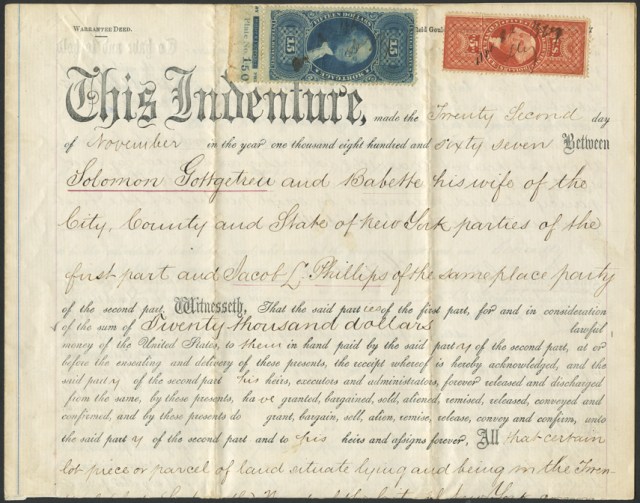 WARRANTEE DEED.
Plate No. 150
FIFTEEN DOLLARS
15 15
MORTGAGE
This Indenture, made the Twenty Second day
of November in the year one thousand eight hundred and sixty seven Between
Solomon Gottgetreu and Babette his wife of the
City, County and State of New York parties of the
first part and Jacob L. Phillips of the same place party
of the second part Witnesseth, That the said parties of the first part, for and in consideration
of the sum of Twenty thousand dollars lawful
money of the United States, to them in hand paid by the said party of the second part, at or
before the ensealing and delivery of these presents, the receipt whereof is hereby acknowledged, and the
said party of the second part his heirs, executors and administrators, forever released and discharged
from the same, by these presents, have granted, bargained, sold, aliened, remised, released, conveyed and
confirmed, and by these presents do grant, bargain, sell, alien, remise, release, convey and confirm, unto
the said party of the second part and to his heirs and assigns forever, All that certain
lot piece or parcel of land situate lying and being in the Twen-